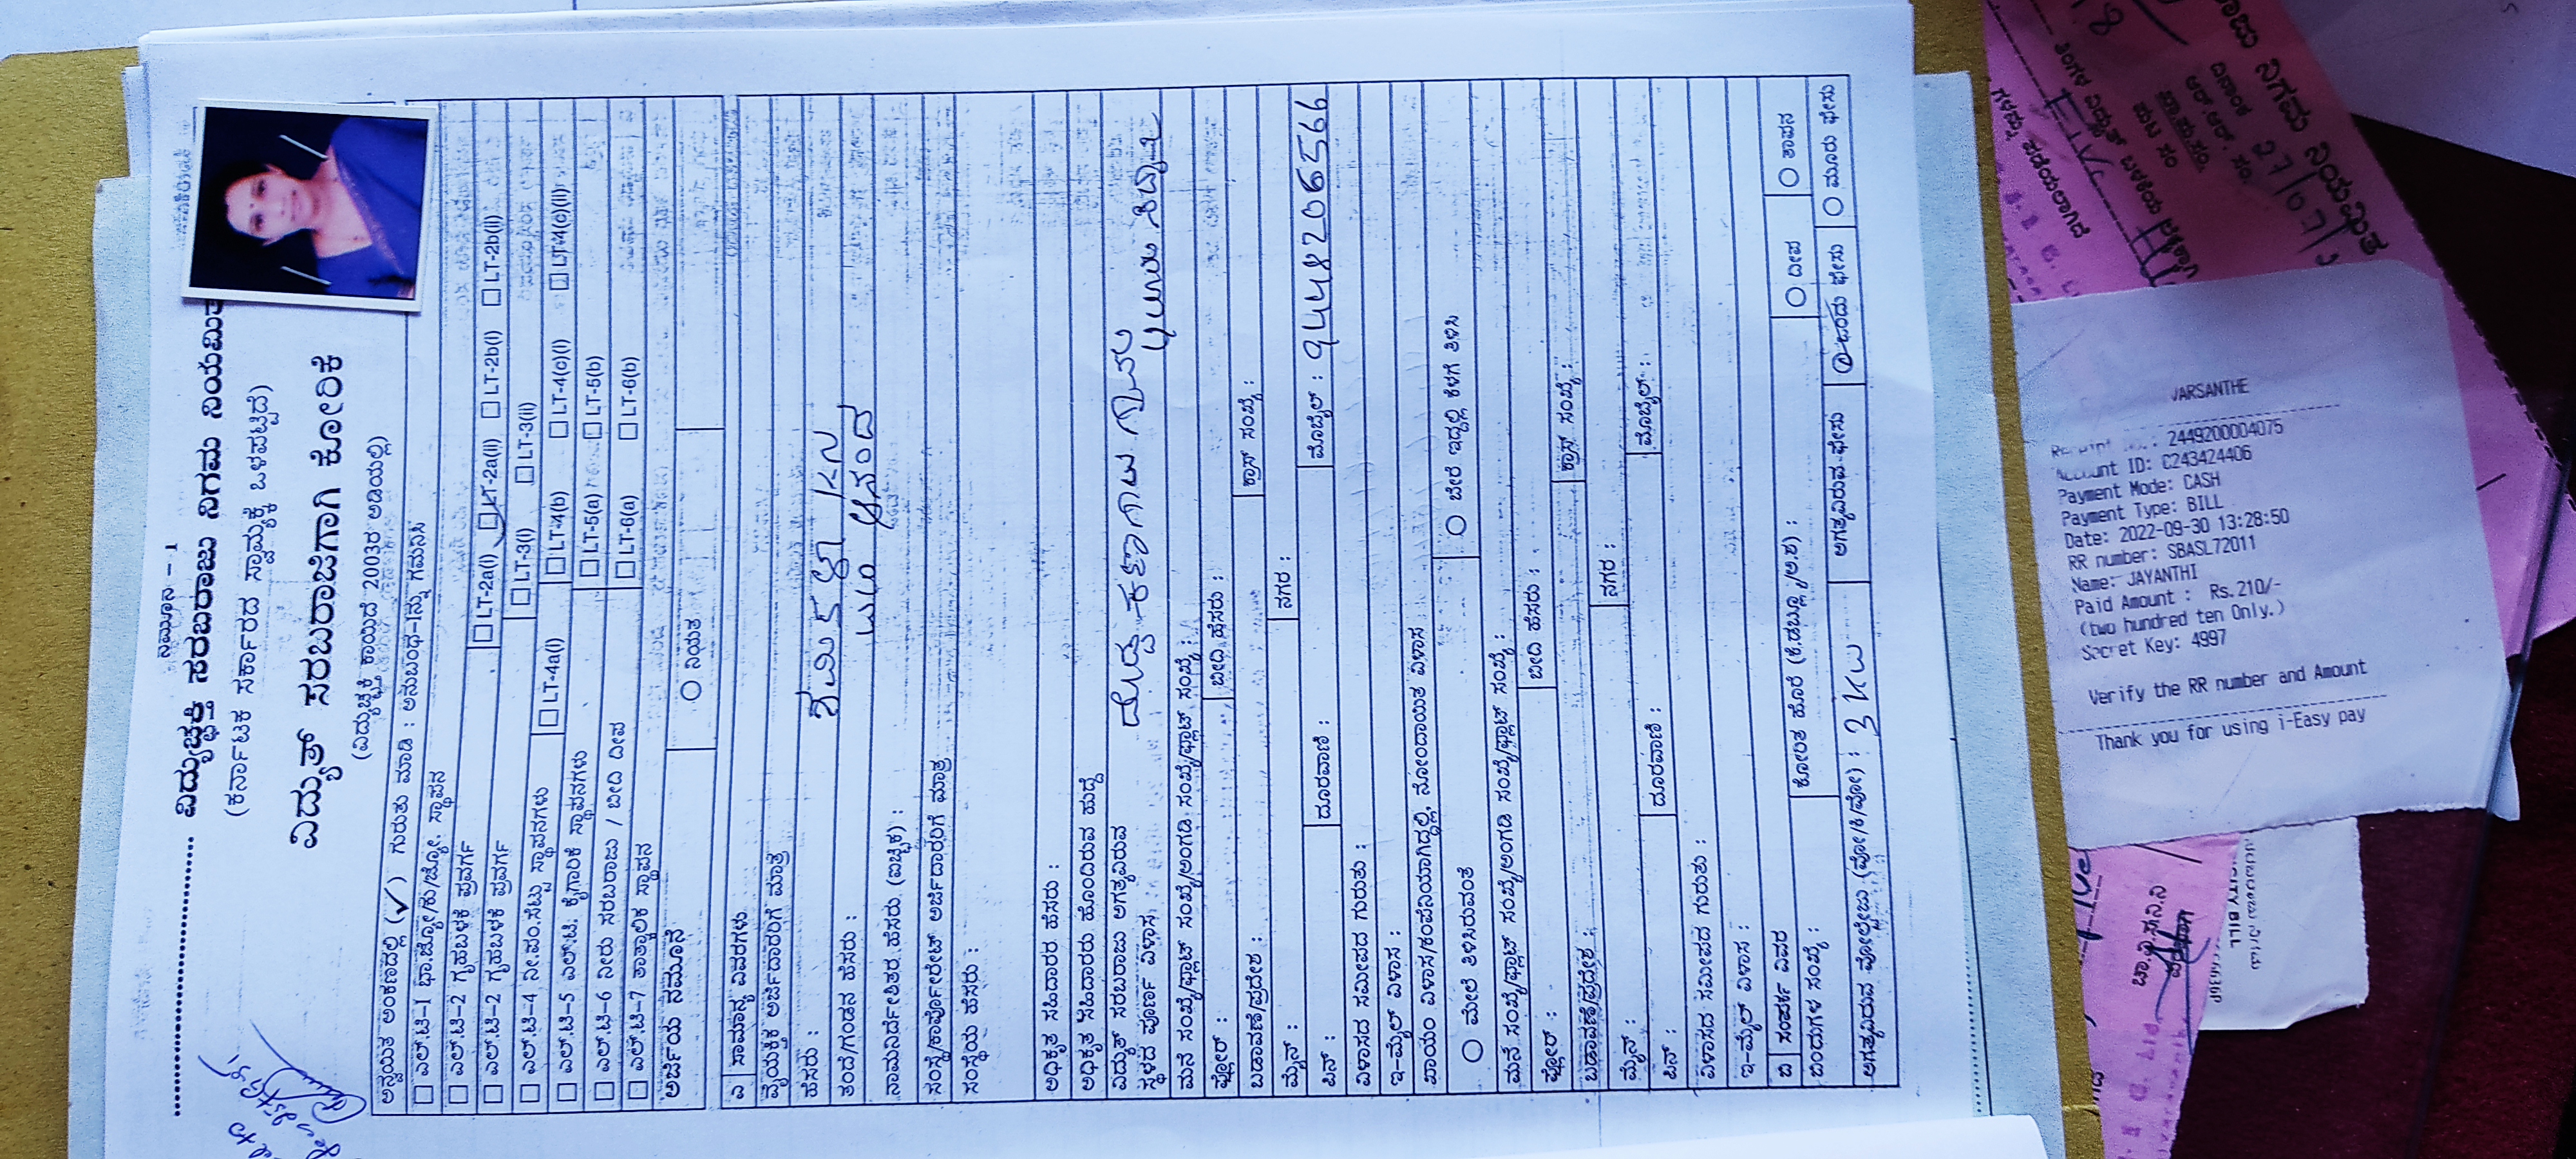 ನಮೂನೆ - 1
ವಿದ್ಯುಚ್ಛಕ್ತಿ ಸರಬರಾಜು ನಿಗಮ ನಿಯಮಿತ
(ಕರ್ನಾಟಕ ಸರ್ಕಾರದ ಸ್ವಾಮ್ಯಕ್ಕೆ ಒಳಪಟ್ಟಿದೆ)
ವಿದ್ಯುತ್ ಸರಬರಾಜಿಗಾಗಿ ಕೋರಿಕೆ
(ವಿದ್ಯುಚ್ಛಕ್ತಿ ಕಾಯಿದೆ 2003ರ ಅಡಿಯಲ್ಲಿ)
ಅನ್ವಯಿತ ಅಂಕಣದಲ್ಲಿ (✓) ಗುರುತು ಮಾಡಿ : ಅನುಬಂಧ-Iನ್ನು ಗಮನಿಸಿ
☐ ಎಲ್.ಟಿ-1 ಭಾ.ಜ್ಯೋ/ಕು/ಜ್ಯೋ. ಸ್ಥಾವನ
☐ ಎಲ್.ಟಿ-2 ಗೃಹಬಳಕೆ ಪ್ರವರ್ಗ ☐ LT-2a(i) ☐ LT-2a(ii) ☐ LT-2b(i) ☐ LT-2b(ii)
☐ ಎಲ್.ಟಿ-2 ಗೃಹಬಳಕೆ ಪ್ರವರ್ಗ ☐ LT-3(i) ☐ LT-3(ii)
☐ ಎಲ್.ಟಿ-4 ನೀ.ಪಂ.ಸೆಟ್ಟು ಸ್ಥಾವನಗಳು ☐ LT-4a(i) ☐ LT-4(b) ☐ LT-4(c)(i) ☐ LT-4(c)(ii)
☐ ಎಲ್.ಟಿ-5 ಎಲ್.ಟಿ. ಕೈಗಾರಿಕೆ ಸ್ಥಾವನಗಳು ☐ LT-5(a) ☐ LT-5(b)
☐ ಎಲ್.ಟಿ-6 ನೀರು ಸರಬರಾಜು / ಬೀದಿ ದೀಪ ☐ LT-6(a) ☐ LT-6(b)
☐ ಎಲ್.ಟಿ-7 ತಾತ್ಕಾಲಿಕ ಸ್ಥಾವನ
ಅರ್ಜಿಯ ನಮೂನೆ ○ ನಿಯತ
ಎ ಸಾಮಾನ್ಯ ವಿವರಗಳು
ವೈಯಕ್ತಿಕ ಅರ್ಜಿದಾರರಿಗೆ ಮಾತ್ರ
ಹೆಸರು :
ತಂದೆ/ಗಂಡನ ಹೆಸರು : ಆನಂದ
ನಾಮನಿರ್ದೇಶಿತರ ಹೆಸರು (ಐಚ್ಛಿಕ) :
ಸಂಸ್ಥೆ/ಕಾರ್ಪೊರೇಟ್ ಅರ್ಜಿದಾರರಿಗೆ ಮಾತ್ರ
ಸಂಸ್ಥೆಯ ಹೆಸರು :
ಅಧಿಕೃತ ಸಹಿದಾರರ ಹೆಸರು :
ಅಧಿಕೃತ ಸಹಿದಾರರು ಹೊಂದಿರುವ ಹುದ್ದೆ
ವಿದ್ಯುತ್ ಸರಬರಾಜು ಅಗತ್ಯವಿರುವ
ಸ್ಥಳದ ಪೂರ್ಣ ವಿಳಾಸ
ಮನೆ ಸಂಖ್ಯೆ/ಫ್ಲಾಟ್ ಸಂಖ್ಯೆ/ಅಂಗಡಿ ಸಂಖ್ಯೆ/ಪ್ಲಾಟ್ ಸಂಖ್ಯೆ :
ಫ್ಲೋರ್ : ಬೀದಿ ಹೆಸರು :
ಬಡಾವಣೆ/ಪ್ರದೇಶ : ಕ್ರಾಸ್ ಸಂಖ್ಯೆ :
ಮೈನ್ : ನಗರ :
ಪಿನ್ : ದೂರವಾಣಿ : ಮೊಬೈಲ್ : 9448206566
ವಿಳಾಸದ ಸಮೀಪದ ಗುರುತು :
ಇ-ಮೈಲ್ ವಿಳಾಸ :
ಖಾಯಂ ವಿಳಾಸ/ಕಂಪೆನಿಯಾಗಿದ್ದಲ್ಲಿ, ನೋಂದಾಯಿತ ವಿಳಾಸ
○ ಮೇಲೆ ತಿಳಿಸಿರುವಂತೆ ○ ಬೇರೆ ಇದ್ದಲ್ಲಿ ಕೆಳಗೆ ತಿಳಿಸಿ
ಮನೆ ಸಂಖ್ಯೆ/ಫ್ಲಾಟ್ ಸಂಖ್ಯೆ/ಅಂಗಡಿ ಸಂಖ್ಯೆ/ಪ್ಲಾಟ್ ಸಂಖ್ಯೆ :
ಫ್ಲೋರ್ : ಬೀದಿ ಹೆಸರು :
ಬಡಾವಣೆ/ಪ್ರದೇಶ : ಕ್ರಾಸ್ ಸಂಖ್ಯೆ :
ಮೈನ್ : ನಗರ :
ಪಿನ್ : ದೂರವಾಣಿ : ಮೊಬೈಲ್ :
ವಿಳಾಸದ ಸಮೀಪದ ಗುರುತು :
ಇ-ಮೈಲ್ ವಿಳಾಸ :
ಬಿ ಸಂಪರ್ಕ ವಿವರ
ಬಿಂದುಗಳ ಸಂಖ್ಯೆ : ಕೋರಿತ ಹೊರೆ (ಕಿ.ಡಬ್ಲ್ಯೂ/ಅ.ಶ) : ○ ದೀಪ ○ ತಾಪನ
ಅಗತ್ಯವಿರುವ ವೋಲ್ಟೇಜು (ವೋ/ಕಿ/ವೋ) : 3 KW ಅಗತ್ಯವಿರುವ ಫೇಸು ○ ಒಂದು ಫೇಸು ○ ಮೂರು ಫೇಸು
VARSANTHE
: 2449200004075
Account ID: C243424406
Payment Mode: CASH
Payment Type: BILL
Date: 2022-09-30 13:28:50
RR number: SBASL72011
Name: JAYANTHI
Paid Amount : Rs.210/-
(two hundred ten Only.)
Secret Key: 4997
Verify the RR number and Amount
Thank you for using i-Easy pay
ನಿಗಮ ನಿಯಮಿತ
ದಿನಾಂಕ
ಆರ್.ಆರ್. ಸಂ.
CITY BILL